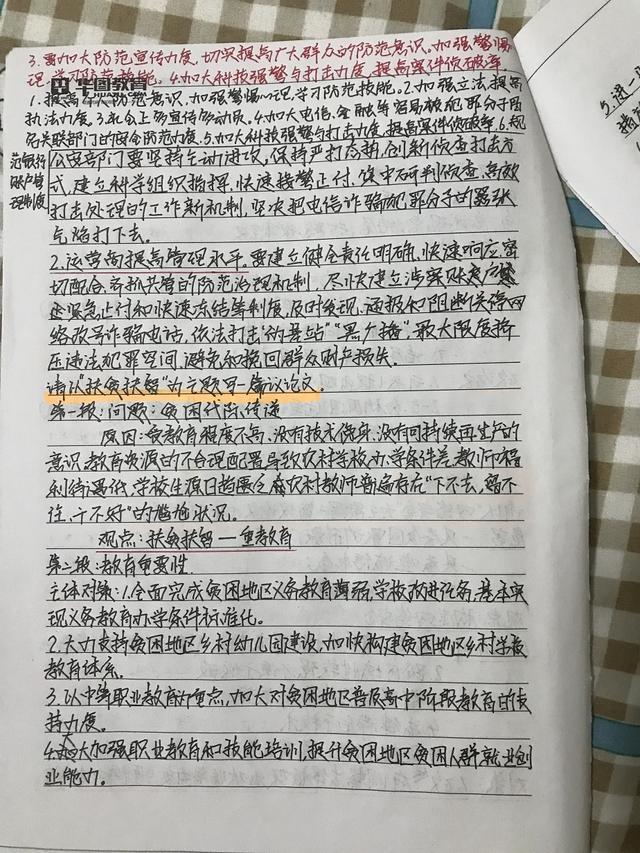 3.要加大防范宣传力度,切实提高广大群众的防范意识。加强警惕
理,学习防范技能。4.加大科技强警与打击力度,提高案件侦破率
华图教育
HUATU.COM
1.提高个人防范意识,加强警惕心理,学习防范技能。2.加强立法,提高
执法力度。3.社会上多宣传多动员。4.加大电信、金融等容易被犯罪分子
关联部门的安全防范力度。5.加大科技强警与打击力度,提高案件侦破率。6.规
范银行
账户管
理制度
公安部门要坚持主动进攻,保持严打态势,创新侦查打击方
式,建立科学组织指挥,快速接警止付,集中研判侦查,高效
打击处理的工作新机制,坚决把电信诈骗犯罪分子的嚣张
气焰打下去。
2.运营商提高管理水平。要建立健全责任明确、快速响应、密
切配合、齐抓共管的防范治理机制,尽快建立涉案账户
紧急止付和快速冻结等制度,及时发现、通报和阻断关停网
络改号诈骗电话,依法打击“伪基站”“黑广播”,最大限度挤
压违法犯罪空间,避免和挽回群众财产损失。
请以“扶贫扶智”为主题写一篇议论文。
第一段:问题:贫困代际传递
原因:受教育程度不高、没有技术傍身、没有可持续再生产的
意识,教育资源的不合理配置导致农村学校办学条件差,教师福
利待遇低,学校生源日趋匮乏,农村教师普遍存在“下不去,留不
住,干不好”的尴尬状况。
观点:扶贫扶智——重教育
第二段:教育重要性
主体对策:1.全面完成贫困地区义务教育薄弱学校改造任务,基本实
现义务教育办学条件标准化。
2.大力支持贫困地区乡村幼儿园建设,加快构建贫困地区乡村学前
教育体系。
3.以中等职业教育为重点,加大对贫困地区普及高中阶段教育的支
持力度。
4.大加强职业教育和技能培训,提升贫困地区贫困人群就业创
业能力。
5.进一